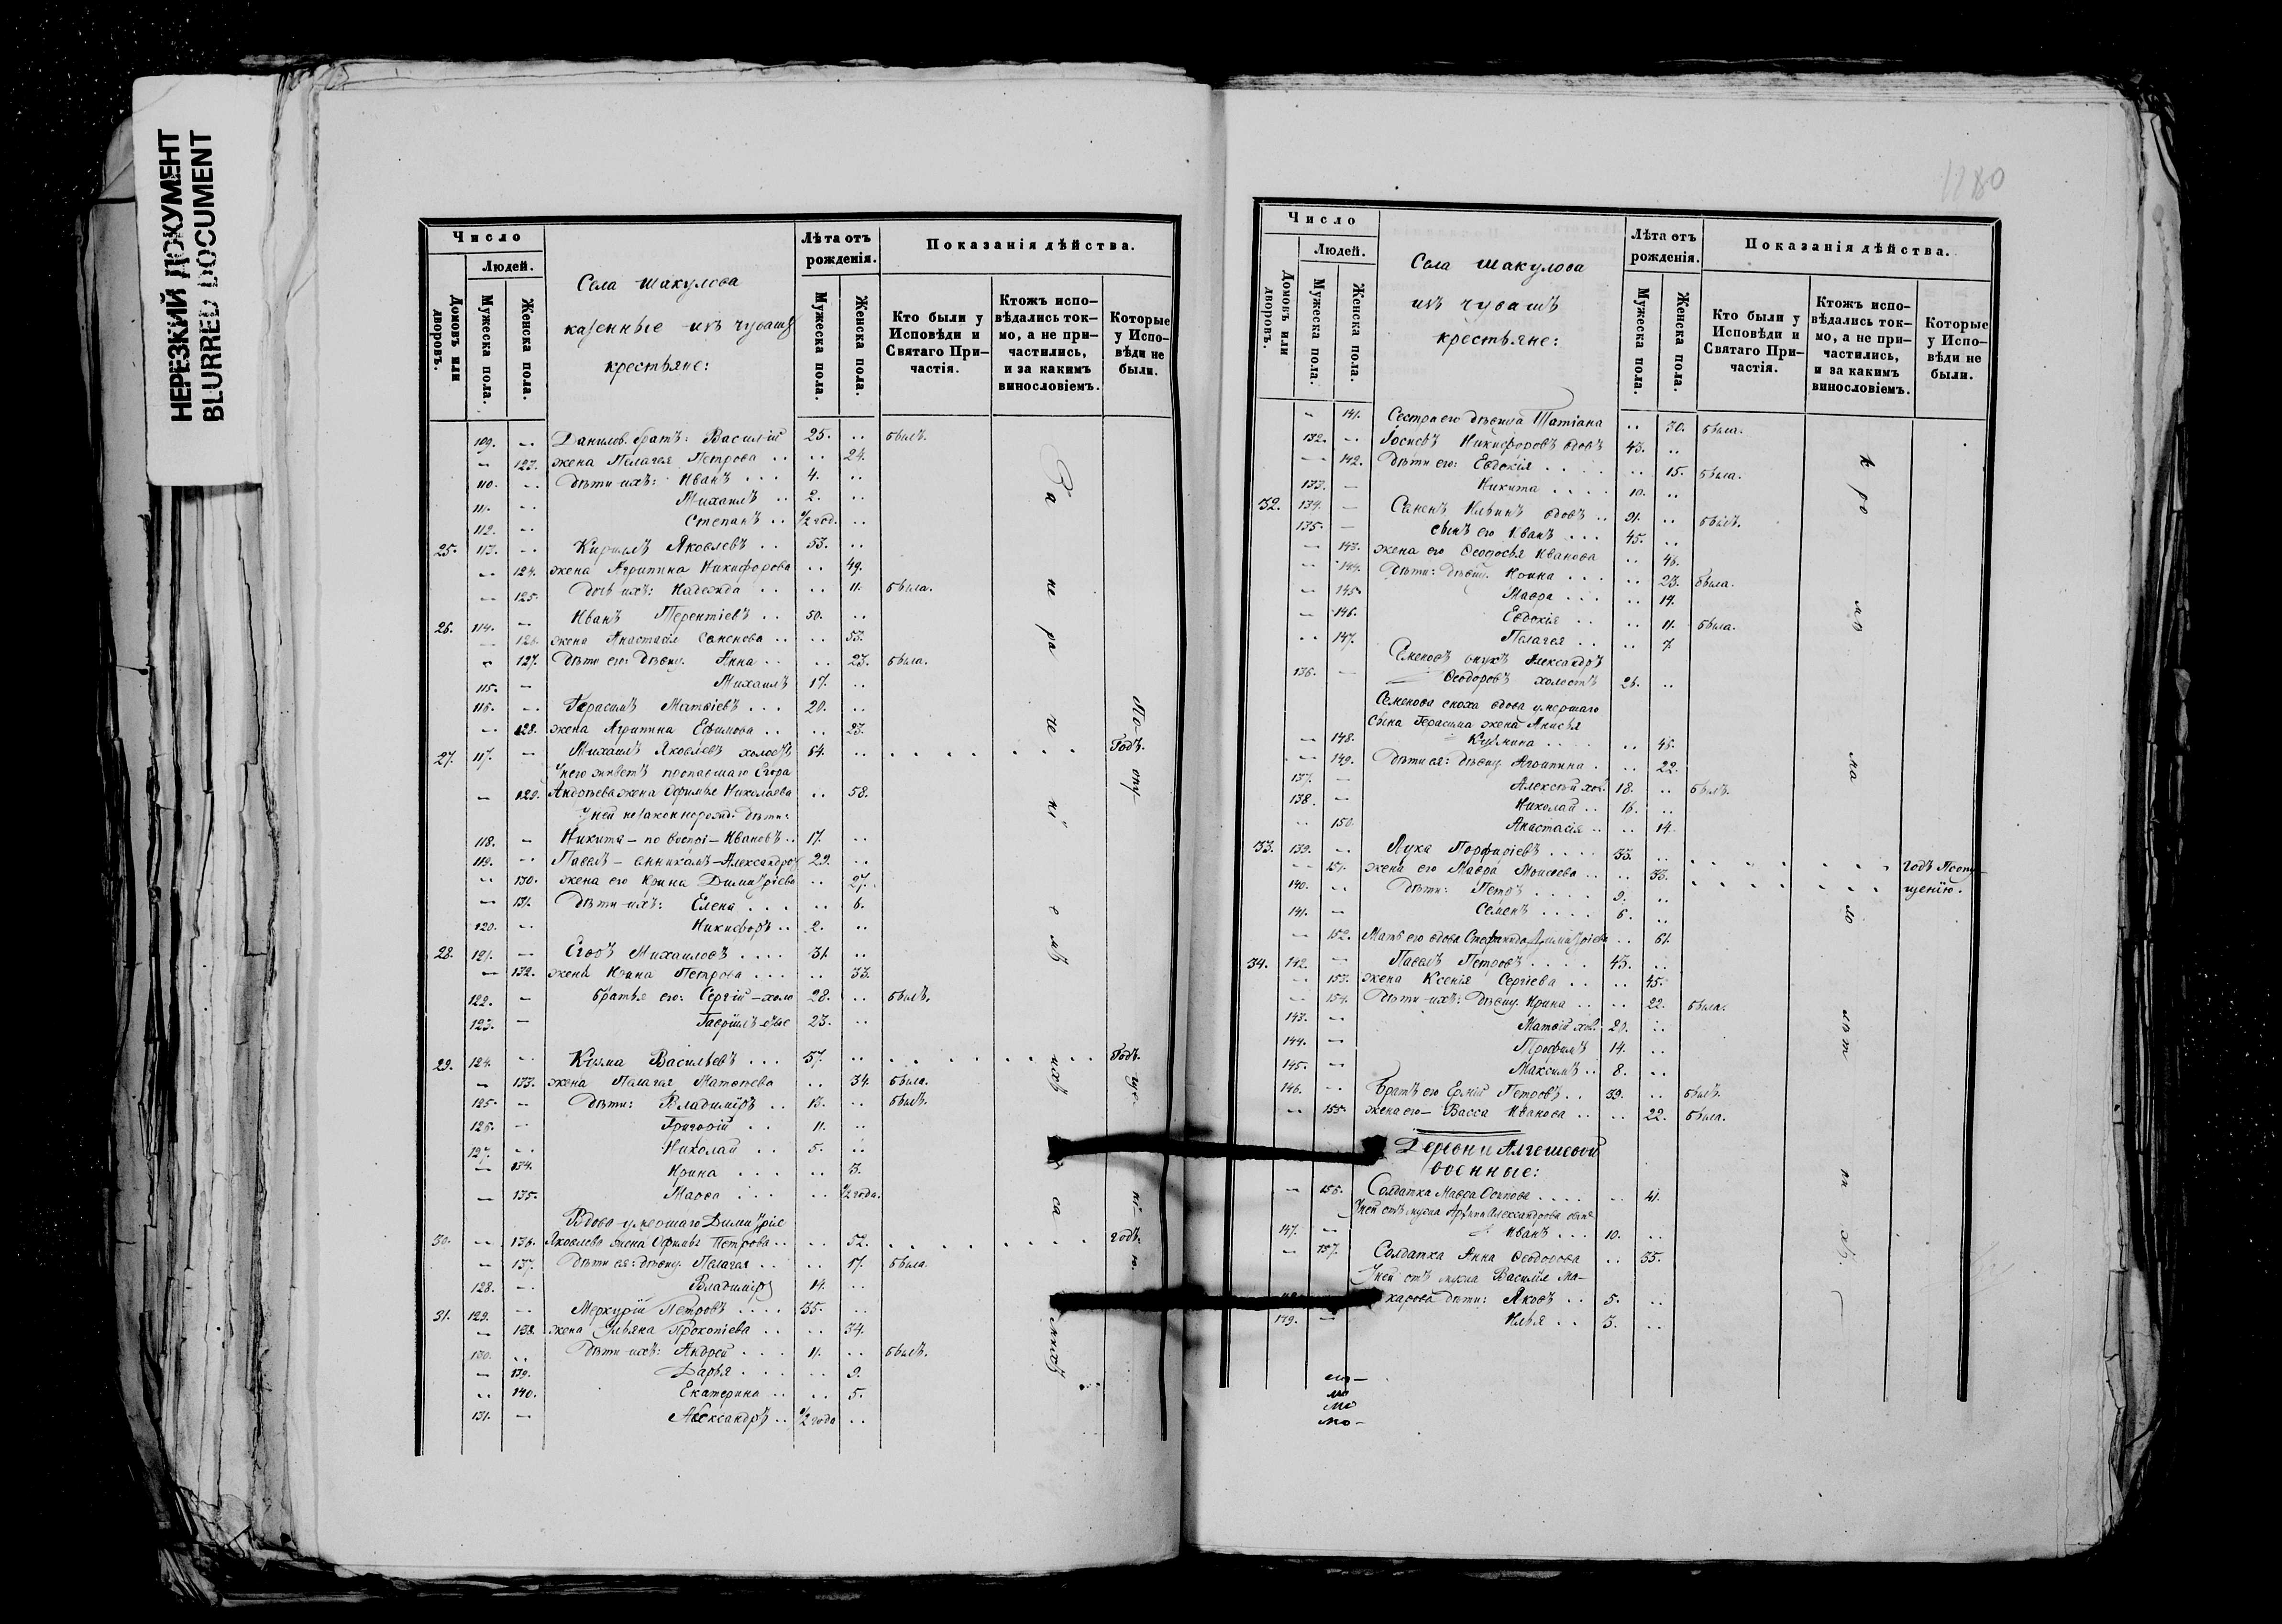 НЕРЕЗКИЙ ДОКУМЕНТ
BLURRED DOCUMENT
Число
Людей.
Домовъ или дворовъ.
Мужеска пола.
Женска пола.
Села Шакулова
казенные изъ чувашъ
крестьяне:
Лѣта отъ рожденія.
Мужеска пола.
Женска пола.
Показанія дѣйства.
Кто были у Исповѣди и Святаго При-частія.
Ктожъ испо-вѣдались ток-мо, а не при-частились, и за какимъ винословіемъ.
Которые у Испо-вѣди не были.
109. Данилов. братъ: Василій 25. былъ.
123. жена Пелагея Петрова 24.
110. дѣти ихъ: Иванъ 4.
111. Михаилъ 2.
112. Степанъ 1/2 год.
25. 113. Кириллъ Яковлевъ 53.
124. жена Агрипина Никифорова 49.
125. дочь ихъ: Надежда 11. была.
26. 114. Иванъ Терентіевъ 50.
126. жена Анастасія Семенова 53.
127. дѣти его: дѣвиц. Анна 23. была.
115. Михаилъ 17.
116. Герасимъ Матвіевъ 20.
128. жена Агрипина Ефимова 23.
27. 117. Михаилъ Яковлевъ холостъ 64. Годъ.
У него живетъ пропавшаго Егора
129. Авдѣева жена Офимья Николаева 58.
У ней незаконнорожд. дѣти:
118. Никита - по воспрі - Ивановъ 17.
119. Павелъ - Александровъ 29.
130. жена его Ирина Димитріева 27.
131. дѣти ихъ: Елена 6.
120. Никифоръ 2.
28. 121. Егоръ Михаиловъ 31.
132. жена Ирина Петрова 33.
122. братья его: Сергій - холо 28. былъ.
123. Гавріилъ 23.
29. 124. Кузма Васильевъ 57. Годъ.
133. жена Палагея Матвѣева 34. была.
125. дѣти: Владимиръ 13. былъ.
126. Григорій 11.
127. Николай 5.
134. Ирина 3.
135. Мавра 1/2 года.
Вдова умершаго Димитрія
30. 136. Яковлева жена Офимья Петрова 52. годъ.
137. дѣти ея: дѣвиц. Пелагея 17. была
128. Владимиръ 14.
31. 129. Меркурій Петровъ 35.
138. жена Ульяна Прокопіева 34.
130. дѣти ихъ: Андрей 11. былъ.
139. Дарья 9.
140. Екатерина 5.
131. Александръ 1/2 года
1280
Число
Людей.
Домовъ или дворовъ.
Мужеска пола.
Женска пола.
Села Шакулова
изъ чувашъ
крестьяне:
Лѣта отъ рожденія.
Мужеска пола.
Женска пола.
Показанія дѣйства.
Кто были у Исповѣди и Святаго При-частія.
Ктожъ испо-вѣдались ток-мо, а не при-частились, и за какимъ винословіемъ.
Которые у Испо-вѣди не были.
141. Сестра его дѣвица Татіана 30. была.
132. Іосифъ Никифоровъ вдовъ 43.
142. дѣти его: Евдокія 15. была.
133. Никита 10.
32. 134. Семенъ Ильинъ вдовъ 91. былъ.
135. сынъ его Иванъ 45.
143. жена его Феодосья Иванова 46.
144. дѣти: дѣвиц. Ирина 23. была.
145. Мавра 19.
146. Евдокія 11. была.
147. Пелагея 7.
Семеновъ внукъ Александръ
136. Феодоровъ холостъ 26.
Семенова сноха вдова умершаго
сына Герасима жена Анисья
148. Кузмина 45.
149. дѣти ея: дѣвиц. Агрипина 22.
137. Алексѣй хол. 18. былъ.
138. Николай 16.
150. Анастасія 14.
33. 139. Лука Порфиріевъ 33. Годъ Попу-
151. жена его Мавра Моисеева 33. щенію.
140. дѣти: Петръ 9.
141. Семенъ 6.
152. Мать его вдова Стефанида Димитріева 61.
34. 142. Павелъ Петровъ 43.
153. жена Ксенія Сергіева 45.
154. дѣти ихъ: дѣвиц. Ирина 22. была.
143. Матвій хол. 20.
144. Трофимъ 14.
145. Максимъ 8.
146. Братъ его Ермій Петровъ 39. былъ.
155. жена его - Васса Иванова 22. была.
Деревни Алгешевой
военные:
156. Солдатка Мавра Осипова 41.
У ней отъ мужа Архипа Александрова сынъ
147. Иванъ 10.
157. Солдатка Анна Феодорова 35.
У ней отъ мужа Василія Ма-
карова дѣти: Яковъ 5.
149. Илья 3.